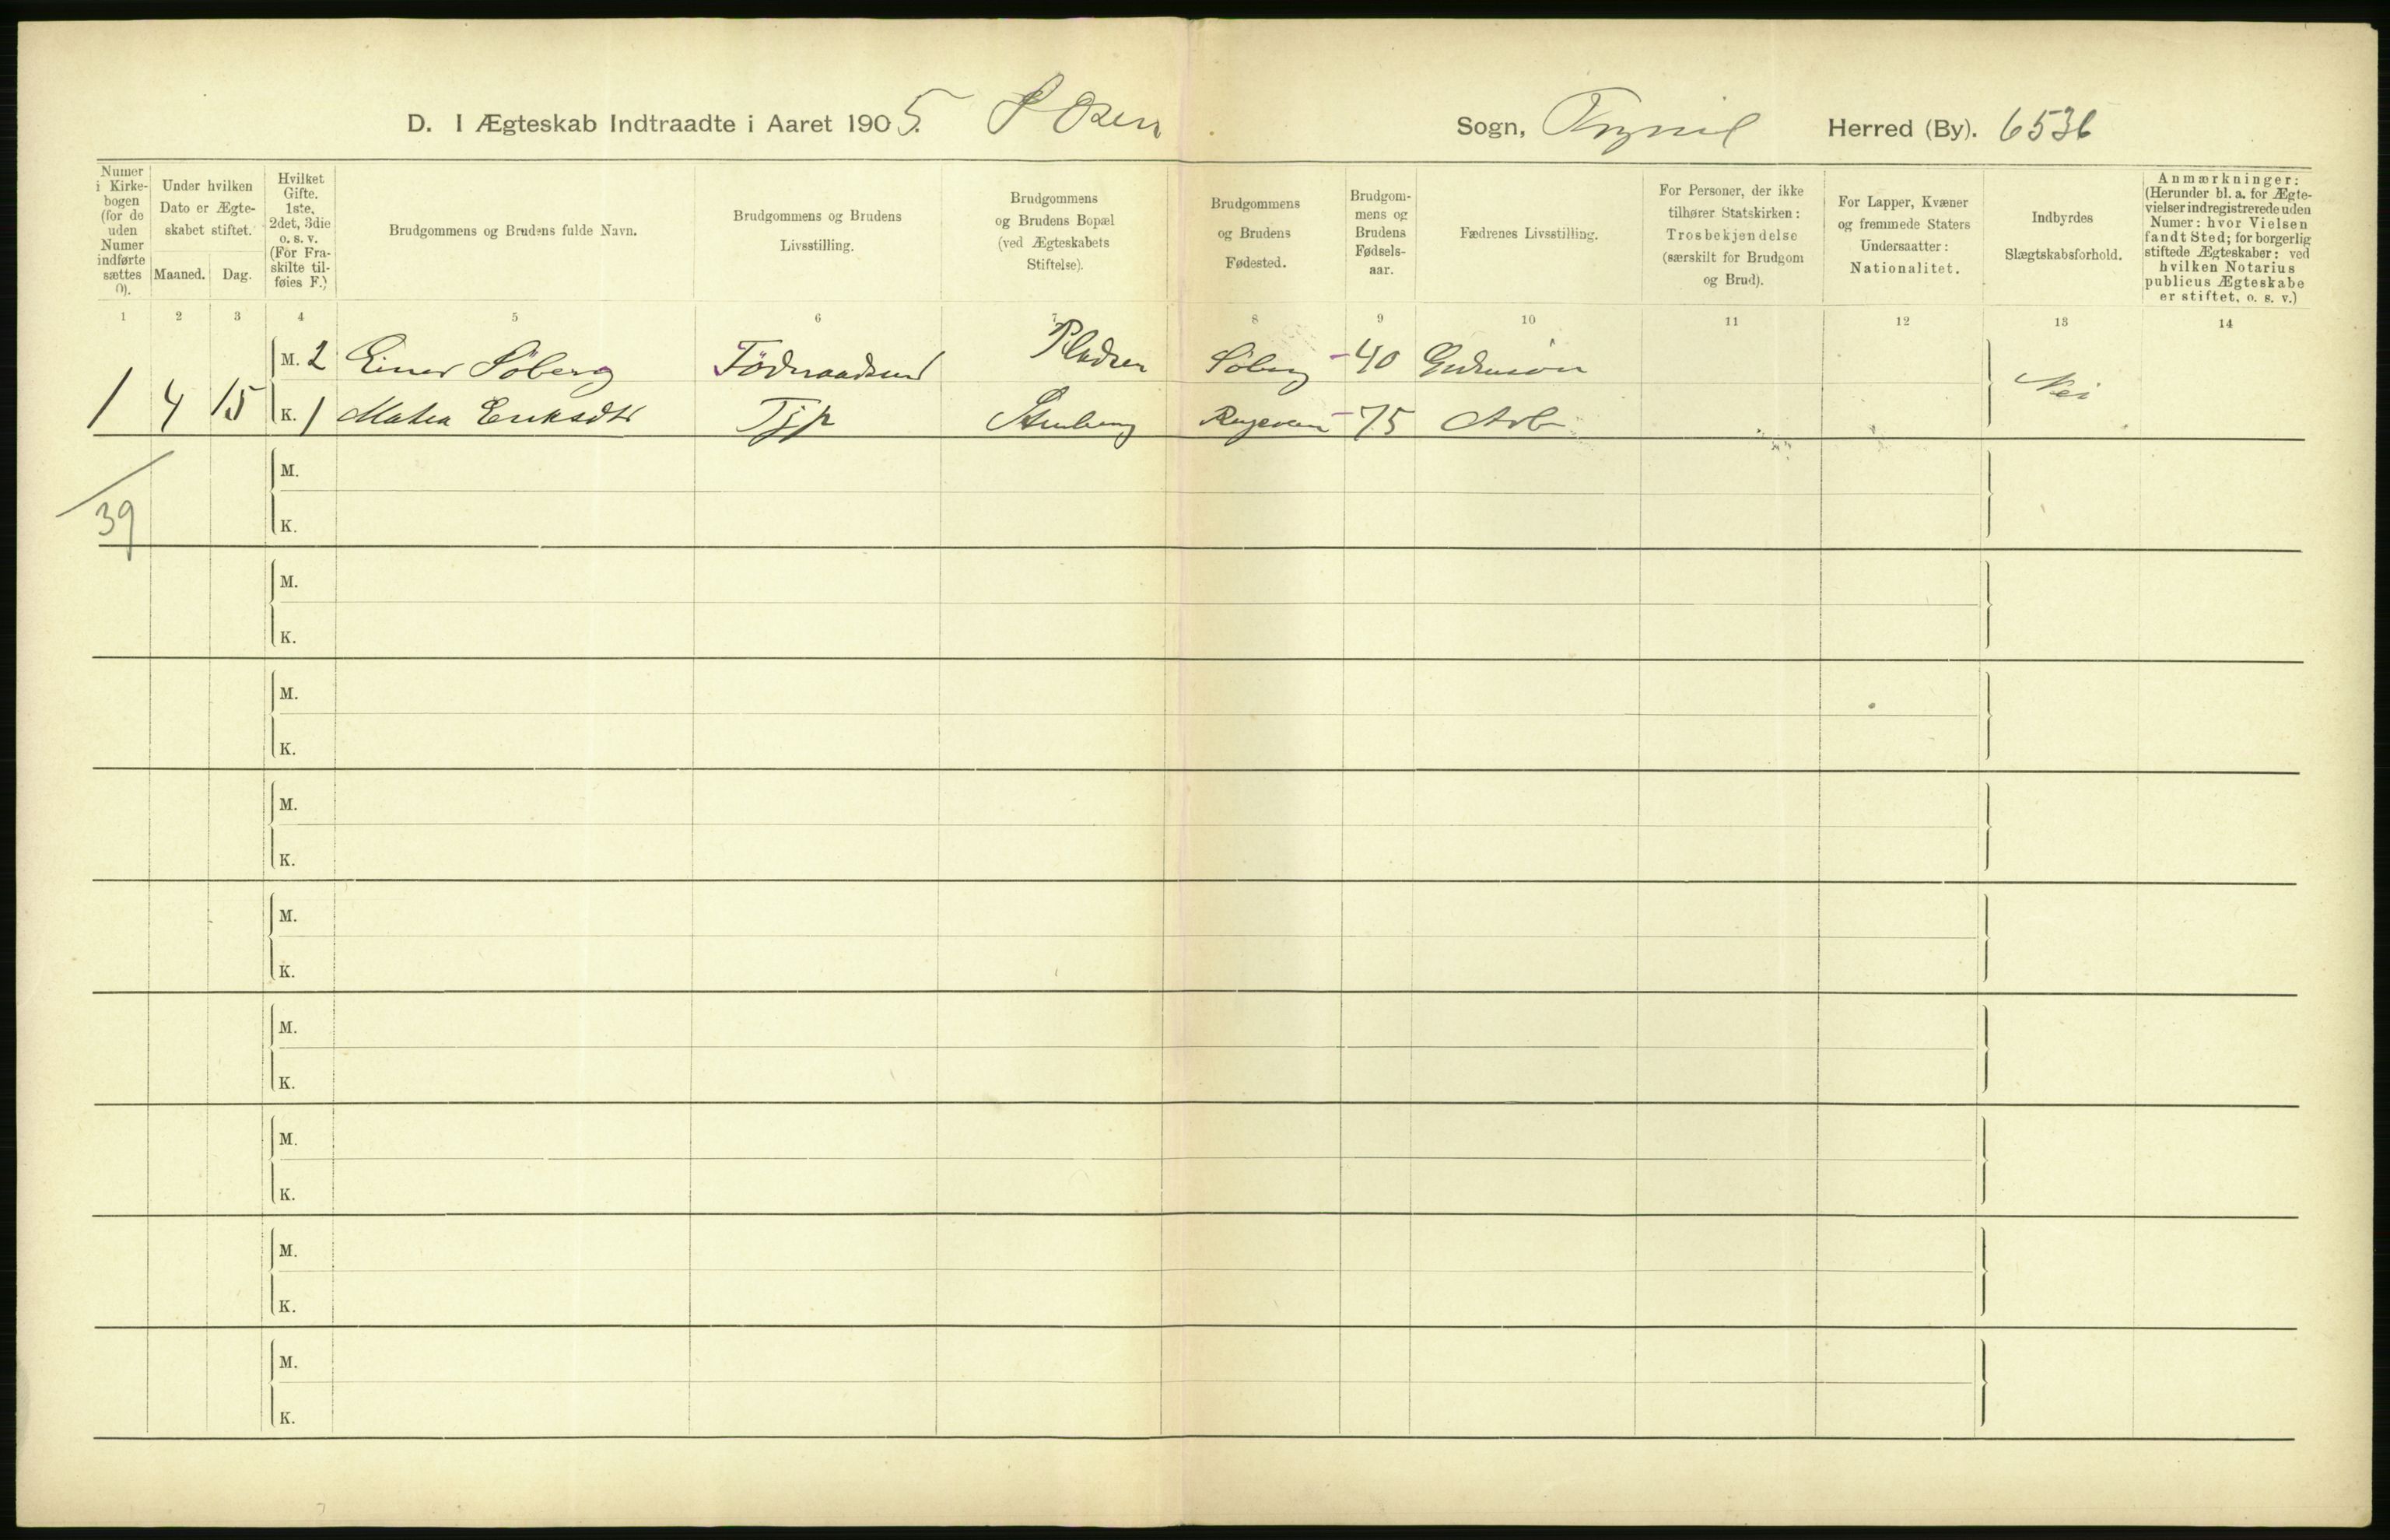 D. I Ægteskab Indtraadte i Aaret 1905. S Osen Sogn, Trysil Herred (By). 6536
Numer i Kirke- bogen (for de uden Numer indførte sættes 0).
Under hvilken Dato er Ægte- skabet stiftet.
Maaned. Dag.
Hvilket Gifte. 1ste, 2det, 3die o. s. v. (For Fra- skilte til- føies F.)
Brudgommens og Brudens fulde Navn.
Brudgommens og Brudens Livsstilling.
Brudgommens og Brudens Bopæl (ved Ægteskabets Stiftelse).
Brudgommens og Brudens Fødested.
Brudgom- mens og Brudens Fødsels- aar.
Fædrenes Livsstilling.
For Personer, der ikke tilhører Statskirken: Trosbekjendelse (særskilt for Brudgom og Brud).
For Lapper, Kvæner og fremmede Staters Undersaatter: Nationalitet.
Indbyrdes Slægtskabsforhold.
Anmærkninger: (Herunder bl. a. for Ægte- vielser indregistrerede uden Numer: hvor Vielsen fandt Sted; for borgerlig stiftede Ægteskaber: ved hvilken Notarius publicus Ægteskabe er stiftet, o. s. v.)
1 2 3 4 5 6 7 8 9 10 11 12 13 14
M. 2 Einar Söberg Födraadsmd Pladsen Söberg - 40 Nei
1 4 15 K. 1 Mathea Eriksdtr Tjp - 75 Arb
M.
39 K.
M.
K.
M.
K.
M.
K.
M.
K.
M.
K.
M.
K.
M.
K.
M.
K.